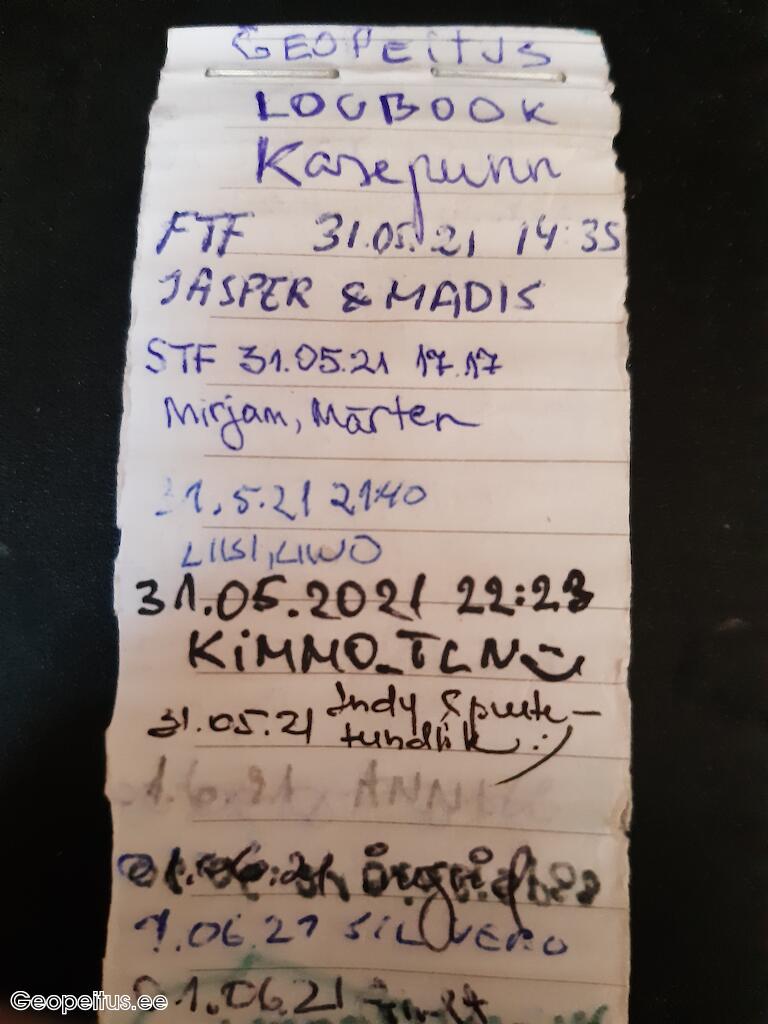 GEOPEITUS
LOGBOOK
Kasepunn
FTF 31.05.21 14:35
JASPER & MADIS
STF 31.05.21 17.17
Mirjam, Märten
31.5.21 21:40
LIISI, LIIVO
31.05.2021 22:23
KiMMO_TLN
Indy & puute-
31.05.21 tundlik :)
1.6.21 ANNI
01.06.21
1.06.21 SILVERO
01.06.21
Geopeitus.ee